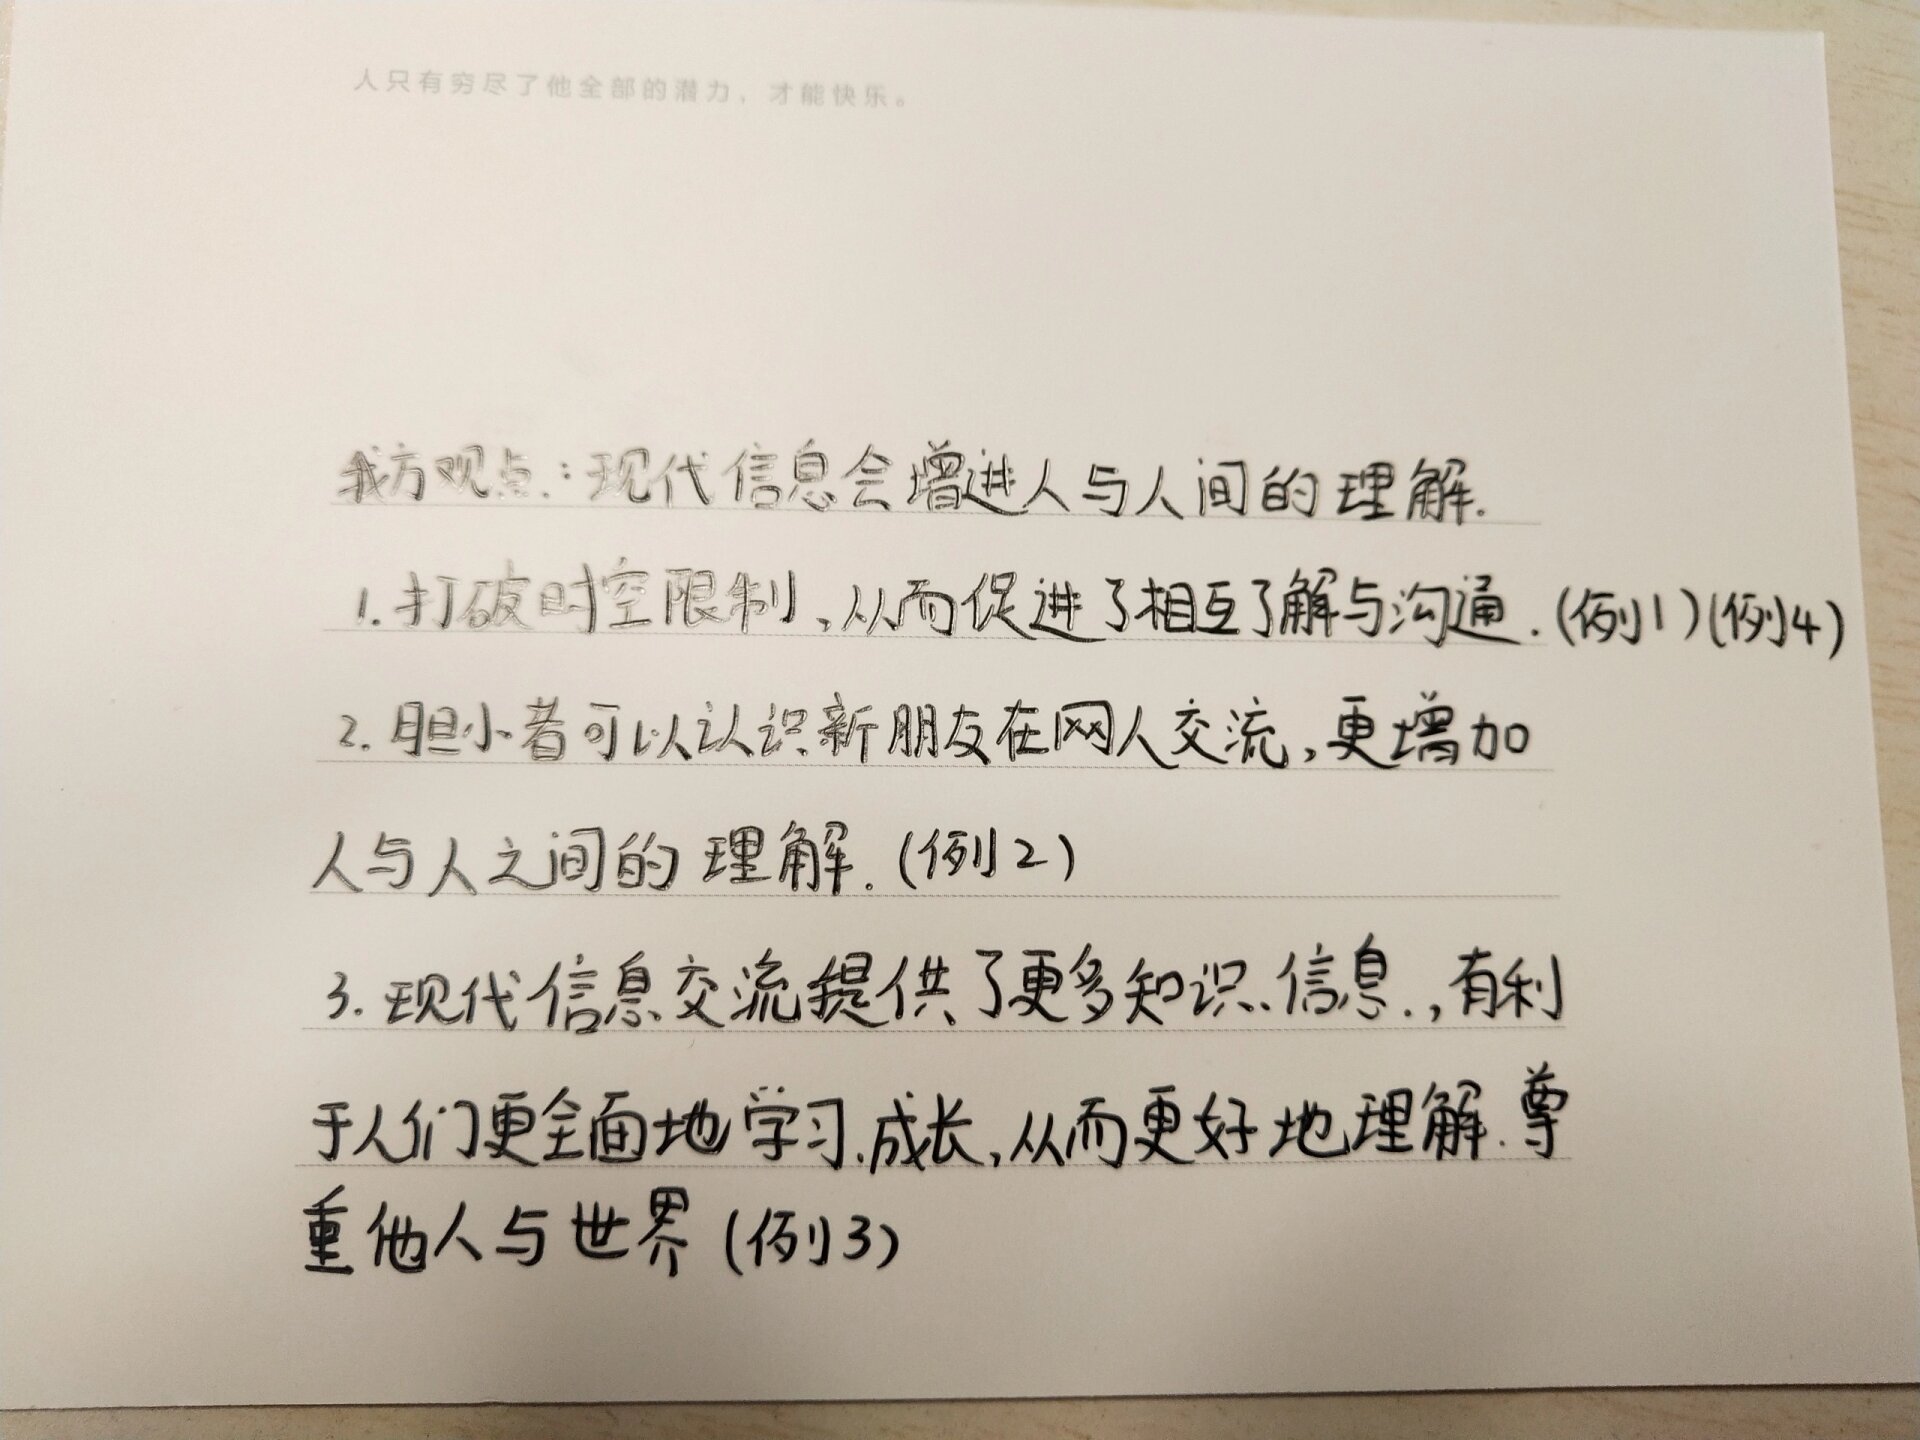 人只有穷尽了他全部的潜力，才能快乐。
我方观点：现代信息会增进人与人间的理解.
1.打破时空限制，从而促进了相互了解与沟通.(例1)(例4)
2.胆小者可以认识新朋友在网人交流，更增加
人与人之间的理解.(例2)
3.现代信息交流提供了更多知识、信息.，有利
于人们更全面地学习、成长，从而更好地理解、尊
重他人与世界(例3)